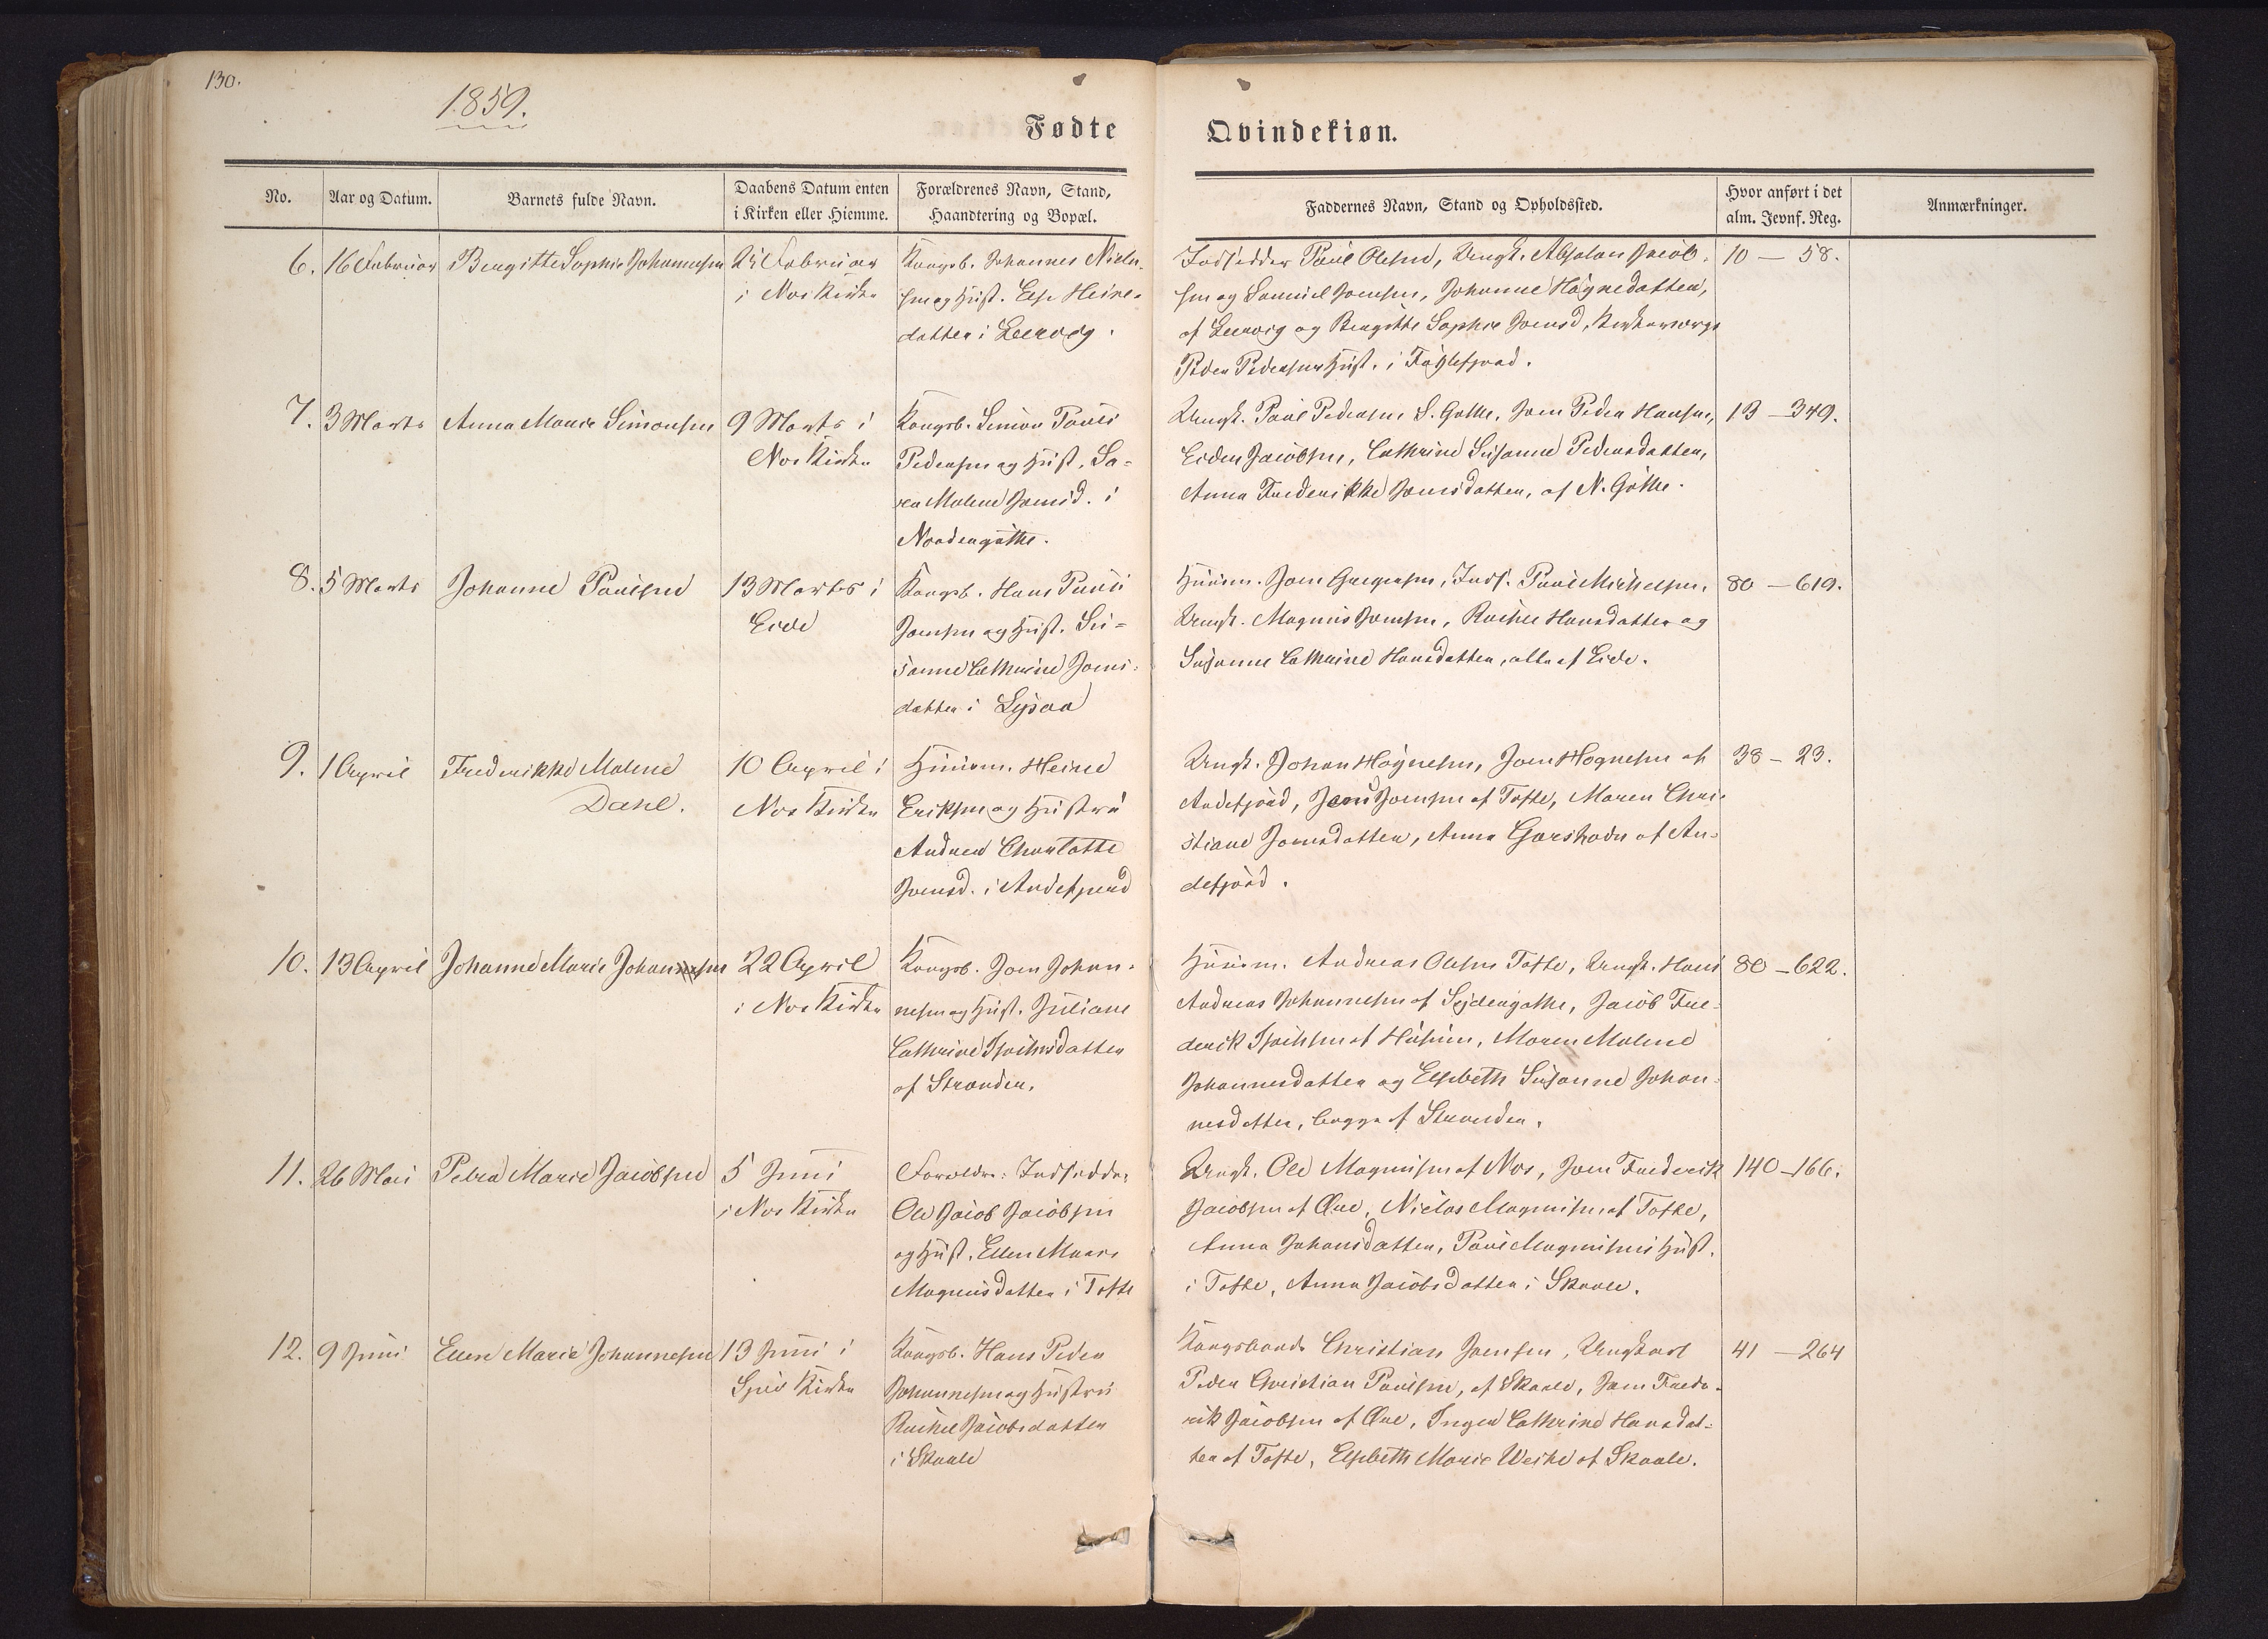 130.
1859.
Fødte
Qvindekiøn.
No.
Aar og Datum.
Barnets fulde Navn.
Daabens Datum enten
i Kirken eller Hiemme.
Forældrenes Navn, Stand,
Haandtering og Bopæl.
Faddernes Navn, Stand og Opholdssted.
Hvor anført i det
alm. Jevnf. Reg.
Anmærkninger.
6.
16 Februar
Bergitte Sophie Johannesen
Februar
i Nes Kirke
Kongsb. Johannes Niclas
sen og Hust. Else Heine-
datter i Leervig.
Indsidder Poul Olesen, Ungk. Absalon Jacob-
sen og Samuel Joensen, Johanne Høgnedatter,
af Leervig og Bergitte Sophie Joensd, Kirkeværge
Peder Pedersens Hust. i Fuglefjord.
10 — 58.
7.
3 Marts
Anna Marie Simonsen
9 Marts i
Nes Kirke
Kongsb. Simon Poul
Pedersen og Hust. Sa-
ra Malene Joensd. i
Nordergøthe.
Ungk. Poul Pedersen S. Gøthe, Joen Peder Hansen,
Jacobsen, Cathrine Susanne Pedersdatter,
Anna Frederikke Joensdatter, af N. Gøthe.
13 — 349.
8.
5 Marts
Johanne Poulsen
13 Marts i
Eide
Kongsb. Hans Poul
Joensen og Hust. Su-
sanne Cathrine Joens-
datter i
Huusm. Joen Gregersen, Inds. Poul Michelsen,
Ungk. Magnus Joensen, Rachel Hansdatter og
Susanne Cathrine Hansdatter, alle af Eide.
80 — 619.
9.
1 April
Frederikke Malene
Dahl.
10 April i
Nes Kirke
Huusm. Heine
Eriksen og Hustru
Andrea Charlotte
Joensd. i Andefjord
Ungk. Johan Høgnesen, Joen Høgnesen af
Andefjord, Jens Joensen af Tofte, Maren Chri-
stiane Joensdatter, Anna af An-
defjord.
38 — 23.
10.
13 April
Johanne Marie Johannesen
22 April
i Nes Kirke
Kongsb. Joen Johan-
nesen og Hust. Juliane
Cathrine Isaksdatter
af Stranden.
Huusm. Andreas Olesen Tofte, Ungk. Hans
Andreas Johannesen af Sydergøthe, Jacob Fre-
derik Isaksen af Husum, Maren Malene
Johannesdatter og Elsebeth Susanne Johan-
nesdatter, begge af Stranden.
80 — 622.
11.
26 Mai
Petra Marie Jacobsen
5 Juni
i Nes Kirke
Forældre: Indsidder
Ole Jacob Jacobsen
og Hust. Ellen Marie
Magnusdatter i Tofte
Ungk. Ole Magnusen af Nes, Joen Frederik
Jacobsen af Øre, Niclas Magnusen af Tofte,
Anna Johansdatter, Poul Magnusens Hust.
i Tofte, Anna Jacobsdatter i Skaale.
140 — 166.
12.
9 Juni
Ellen Marie Johannesen
13 Juni i
Kirke
Kongsb. Hans Peder
Johannesen og Hustru
Rachel Jacobsdatter
i Skaale
Kongsbonde Christian Joensen, Ungkarl
Peder Christian Poulsen, af Skaale, Joen Frede-
rik Jacobsen af Øre, Inger Cathrine Hansdat-
ter af Tofte, Elsebeth Marie Weihe af Skaale.
41 — 264